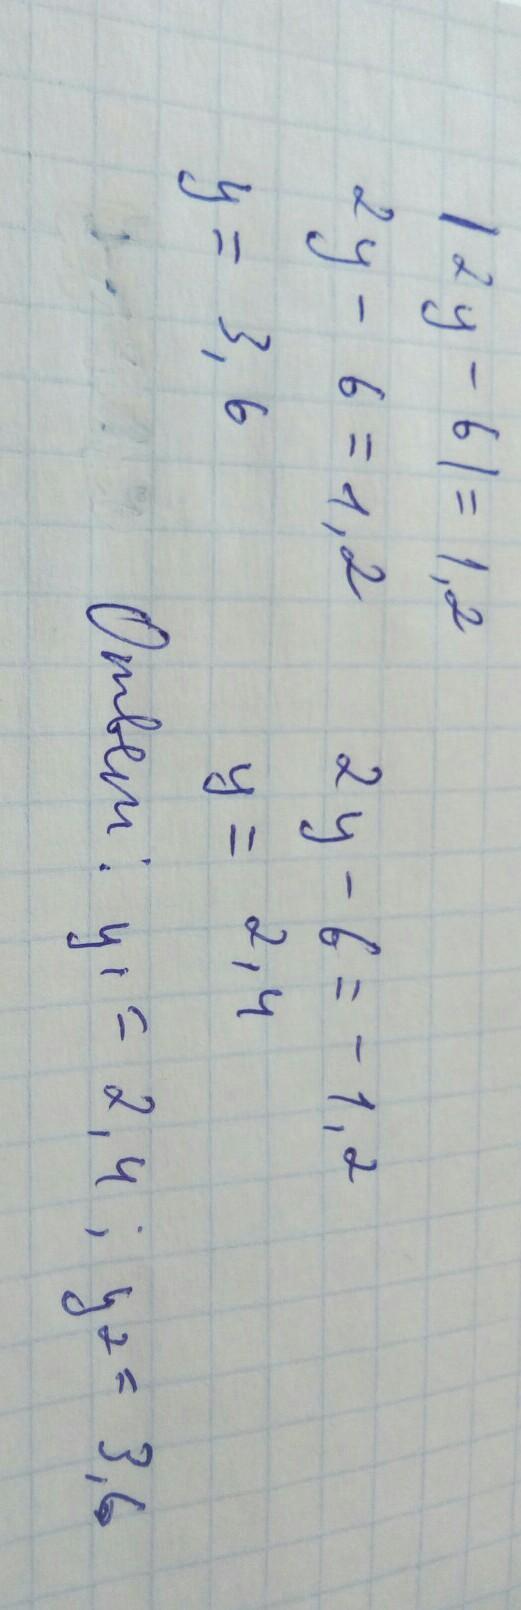 |2y - 6| = 1,2
2y - 6 = 1,2 2y - 6 = -1,2
y = 3,6 y = 2,4
Ответ: y₁ = 2,4; y₂ = 3,6